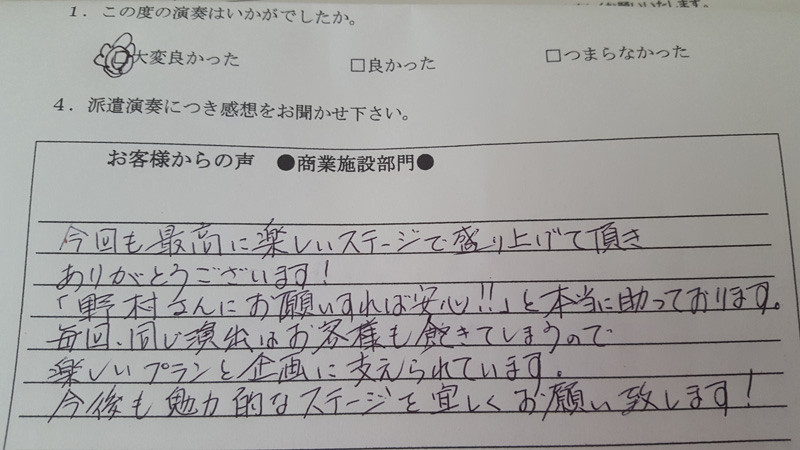 1．この度の演奏はいかがでしたか。
□大変良かった □良かった □つまらなかった
4．派遣演奏につき感想をお聞かせ下さい。
お客様からの声 ●商業施設部門●
今回も最高に楽しいステージで盛り上げて頂き
ありがとうございます！
「野村さんにお願いすれば安心!!」と本当に助っております。
毎回、同じ演出はお客様も飽きてしまうので
楽しいプランと企画に支えられています。
今後も魅力的なステージを宜しくお願い致します！